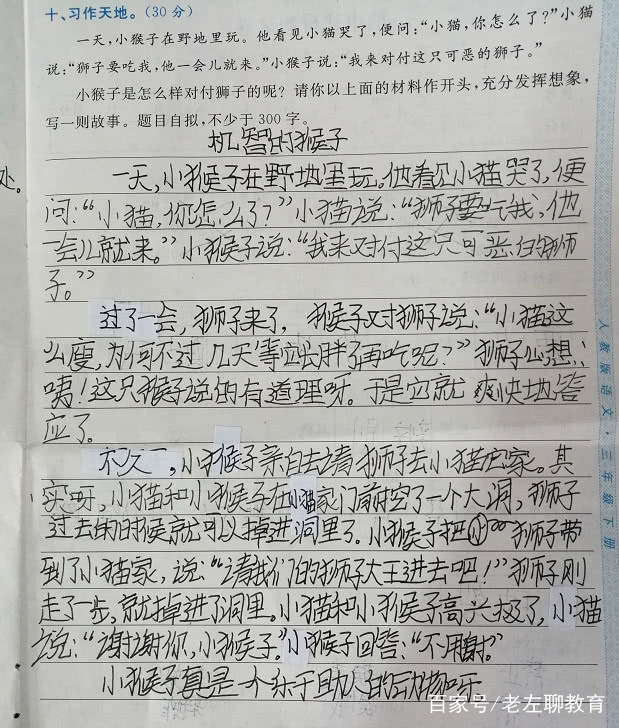 十、习作天地。(30分)
一天,小猴子在野地里玩。他看见小猫哭了,便问:“小猫,你怎么了?”小猫
说:“狮子要吃我,他一会儿就来。”小猴子说:“我来对付这只可恶的狮子。”
小猴子是怎么样对付狮子的呢?请你以上面的材料作开头,充分发挥想象,
写一则故事。题目自拟,不少于300字。
机智的猴子
一天,小猴子在野地里玩。他看见小猫哭了,便
问:“小猫,你怎么了?”小猫说:“狮子要吃我,他
一会儿就来。”小猴子说:“我来对付这只可恶的狮
子。”
过了一会,狮子来了,猴子对狮子说:“小猫这
么瘦,为何不过几天等它长胖了再吃呢?”狮子心想:
咦!这只猴子说的有道理呀。于是它就爽快地答
应了。
不久,小猴子亲自去请狮子去小猫家。其
实呀,小猫和小猴子在小猫家门前挖了一个大洞,狮子
过去的时候就可以掉进洞里了。小猴子把狮子带
到了小猫家,说:“请我们的狮子大王进去吧!”狮子刚
走了一步,就掉进了洞里。小猫和小猴子高兴极了,小猫
说:“谢谢你,小猴子。”小猴子回答:“不用谢。”
小猴子真是一个乐于助人的动物呀
处。
人教版语文·三年级下册
百家号/老左聊教育